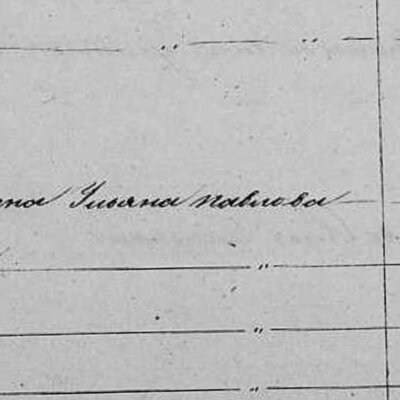 〃 〃
на Ульяна Павлова
〃
〃
〃